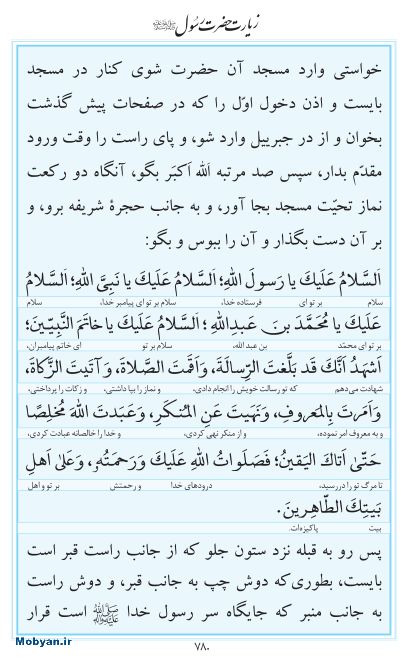 زیارت حضرت رسول ﷺ
خواستی وارد مسجد آن حضرت شوی کنار در مسجد
بایست و اذن دخول اوّل را که در صفحات پیش گذشت
بخوان و از در جبرییل وارد شو، و پای راست را وقت ورود
مقدّم بدار، سپس صد مرتبه اَللّٰه اَکبَر بگو، آنگاه دو رکعت
نماز تحیّت مسجد بجا آور، و به جانب حجرهٔ شریفه برو، و
بر آن دست بگذار و آن را ببوس و بگو:
اَلسَّلامُ عَلَیکَ یا رَسولَ اللّٰهِ؛ اَلسَّلامُ عَلَیکَ یا نَبِیَّ اللّٰهِ؛ اَلسَّلامُ
سلام بر تو ای فرستاده خدا، سلام بر تو ای پیامبر خدا، سلام
عَلَیکَ یا مُحَمَّدَ بنَ عَبدِاللّٰهِ؛ اَلسَّلامُ عَلَیکَ یا خاتَمَ النَّبِیّینَ؛
بر تو ای محمّد بن عبدالله، سلام بر تو ای خاتم پیامبران،
اَشهَدُ اَنَّکَ قَد بَلَّغتَ الرِّسالَةَ، وَ اَقَمتَ الصَّلاةَ، وَ آتَیتَ الزَّکاةَ،
شهادت می‌دهم که تو رسالت خویش را انجام دادی، و نماز را بپا داشتی، و زکات را پرداختی،
وَ اَمَرتَ بِالمَعروفِ، وَ نَهَیتَ عَنِ المُنکَرِ، وَ عَبَدتَ اللّٰهَ مُخلِصًا
و به معروف امر نموده، و از منکر نهی کردی، و خدا را خالصانه عبادت کردی،
حَتّیٰ اَتاکَ الیَقینُ؛ فَصَلَواتُ اللّٰهِ عَلَیکَ وَ رَحمَتُهُ، وَ عَلیٰ اَهلِ
تا مرگ تو را دررسید، درودهای خدا و رحمتش بر تو و اهل
بَیتِکَ الطّاهِرینَ.
بیت پاکیزه‌ات.
پس رو به قبله نزد ستون جلو که از جانب راست قبر است
بایست، بطوری‌که دوش چپ به جانب قبر، و دوش راست
به جانب منبر که جایگاه سر رسول خدا ﷺ است قرار
۷۸۰
Mobyan.ir